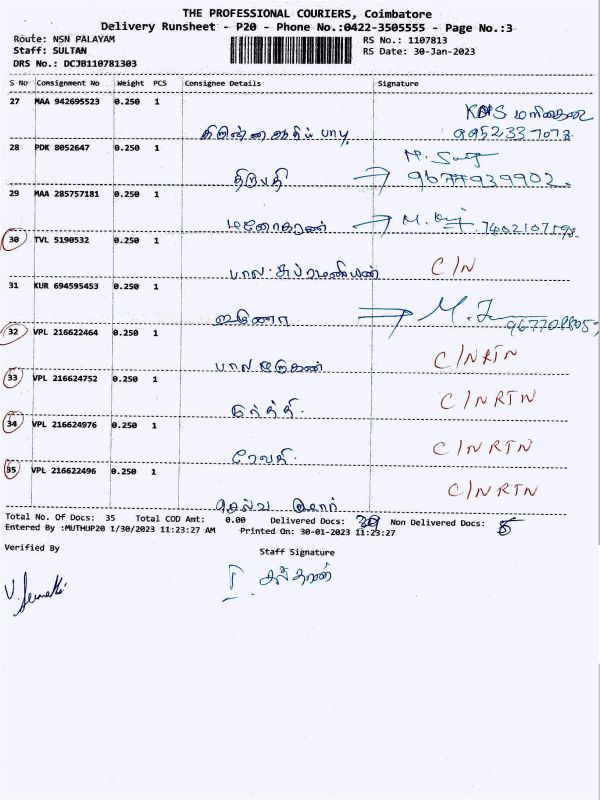 THE PROFESSIONAL COURIERS, Coimbatore
Delivery Runsheet - P20 - Phone No.:0422-3505555 - Page No.:3
Route: NSN PALAYAM
Staff: SULTAN
DRS No.: DCJB110781303
RS No.: 1107813
RS Date: 30-Jan-2023
S No Consignment No Weight PCS Consignee Details Signature
27 MAA 942695523 0.250 1
9952337073
28 PDK 8052647 0.250 1
திருபதி 9677939902
29 MAA 285757181 0.250 1
மனோகரன்
30 TVL 5190532 0.250 1
பால சுப்ரமணியன் C/N
31 KUR 694595453 0.250 1
32 VPL 216622464 0.250 1
பால முருகன் C/N RTN
33 VPL 216624752 0.250 1
C/N RTN
34 VPL 216624976 0.250 1
ரேவதி C/N RTN
35 VPL 216622496 0.250 1
C/N RTN
Total No. Of Docs: 35 Total COD Amt: 0.00 Delivered Docs: Non Delivered Docs: 5
Entered By :MUTHUP20 1/30/2023 11:23:27 AM Printed On: 30-01-2023 11:23:27
Verified By Staff Signature
சுல்தான்